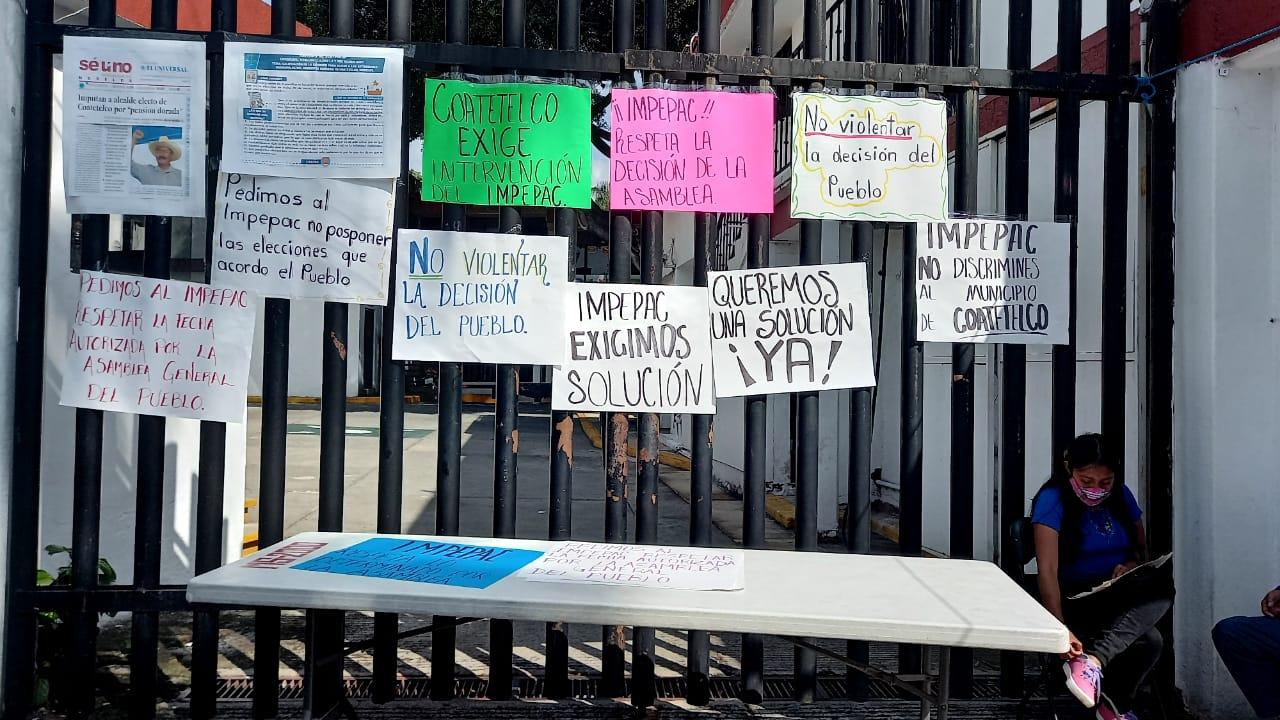 sé uno
MORELOS
EL UNIVERSAL
Imputan a alcalde electo de
Coatetelco por "pensión dorada"
COATETELCO
EXIGE
INTERVENCIÓN
DEL IMPEPAC.
¡IMPEPAC!!
RESPETA LA
DECISIÓN DE LA
ASAMBLEA.
No violentar
la decisión del
Pueblo
Pedimos al
Impepac no posponer
las elecciones que
acordo el Pueblo
NO VIOLENTAR
LA DECISIÓN
DEL PUEBLO.
IMPEPAC
EXIGIMOS
SOLUCIÓN
QUEREMOS
UNA SOLUCIÓN
¡YA!
IMPEPAC
NO DISCRIMINES
AL MUNICIPIO
DE COATETELCO
PEDIMOS AL IMPEPAC
RESPETAR LA FECHA
AUTORIZADA POR LA
ASAMBLEA GENERAL
DEL PUEBLO.
IMPEPAC
LA ASAMBLEA
POR LA ASAMBLEA
DEL PUEBLO